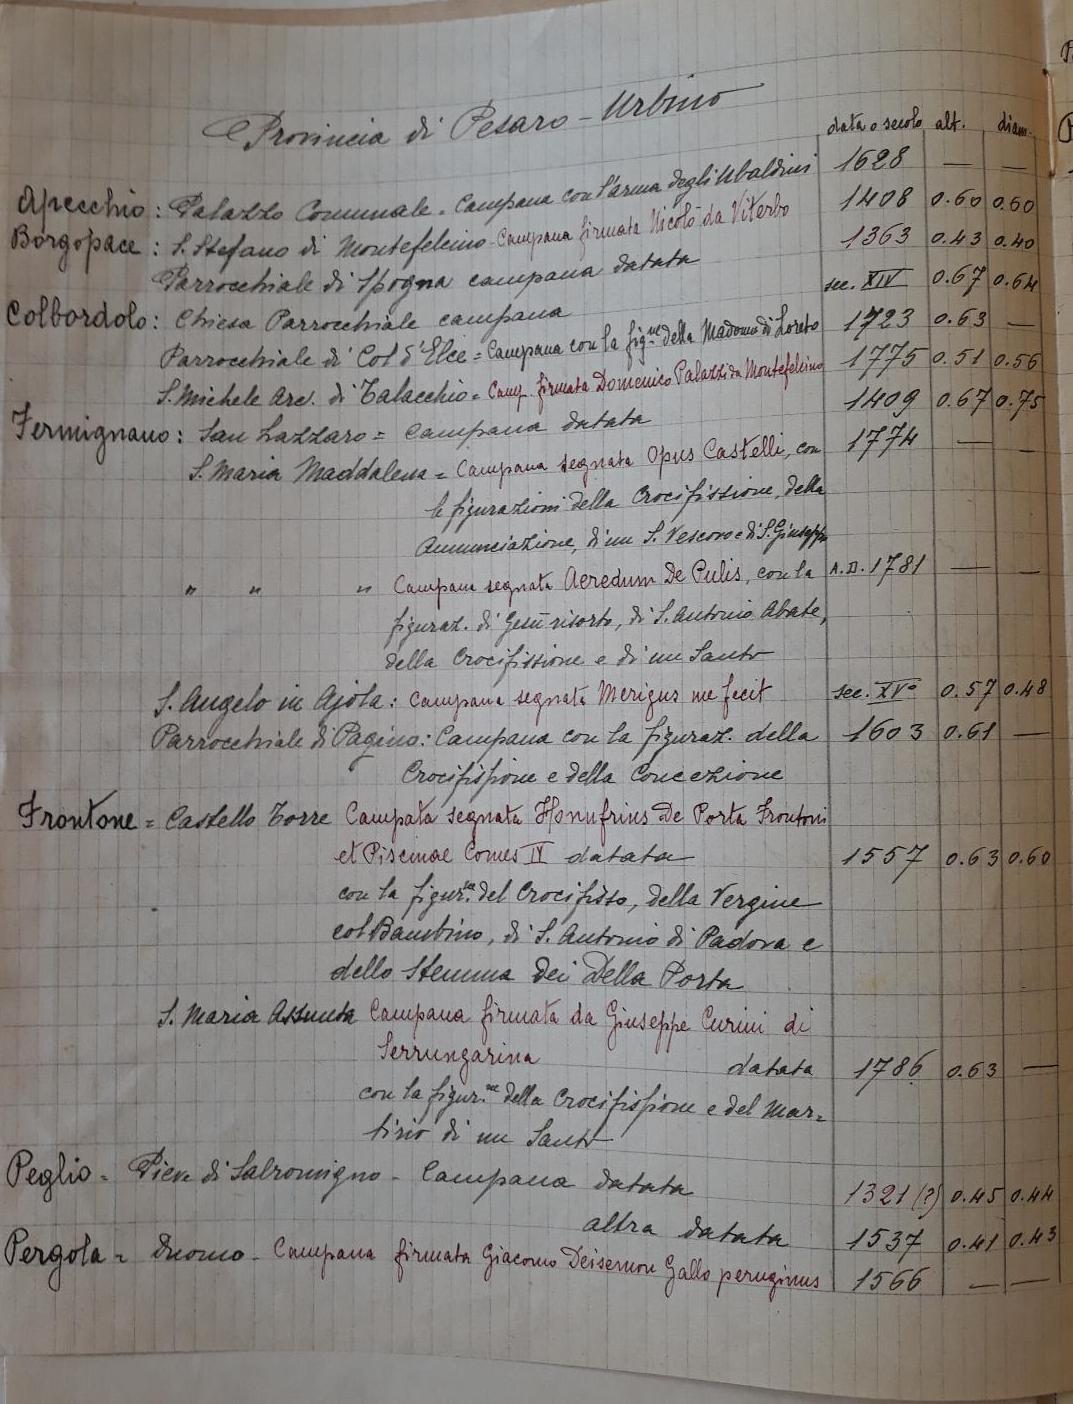 Provincia di Pesaro - Urbino
data o secolo alt. diam.
Apecchio: Palazzo Comunale - Campana con l'arma degli Ubaldini 1628 — —
Borgopace: S. Stefano di Montefelcino - Campana firmata Nicolò da Viterbo 1408 0.60 0.60
Parrocchiale di Spogna campana datata 1363 0.43 0.40
Colbordolo: Chiesa Parrocchiale campana sec. XIV 0.67 0.64
Parrocchiale di Col d'Elce = Campana con la fig.ne della Madonna di Loreto 1723 0.63 —
S. Michele Arc. di Talacchio = Camp. firmata Domenico Palazzi da Montefelcino 1775 0.51 0.56
Fermignano: San Lazzaro = Campana datata 1409 0.67 0.75
S. Maria Maddalena = Campana segnata Opus Castelli, con 1774 — —
le figurazioni della Crocifissione, della
Annunciazione, di un S. Vescovo e di S. Giuseppe
" " " Campana segnata Aeredum De Pulis, con la A.D. 1781 — —
figuraz. di Gesù risorto, di S. Antonio Abate,
della Crocifissione e di un Santo
S. Angelo in Ajola: Campana segnata Merigus me fecit sec. XVº 0.57 0.48
Parrocchiale di Pagino: Campana con la figuraz. della 1603 0.61 —
Crocifissione e della Concezione
Frontone = Castello Torre Campata segnata Honufrius De Porta Frontoni
et Piscinae Comes IV datata 1557 0.63 0.60
con la figur.ne del Crocifisso, della Vergine
col Bambino, di S. Antonio di Padova e
dello Stemma Dei Della Porta
S. Maria Assunta Campana firmata da Giuseppe Curini di
Serrungarina datata 1786 0.63 —
con la figur.ne della Crocifissione e del Mar=
tirio di un Santo
Peglio = Pieve di Salromigno - Campana datata 1321 (?) 0.45 0.44
altra datata 1537 0.41 0.43
Pergola = Duomo - Campana firmata Giacomo Deisemon Gallo peruginus 1566 — —